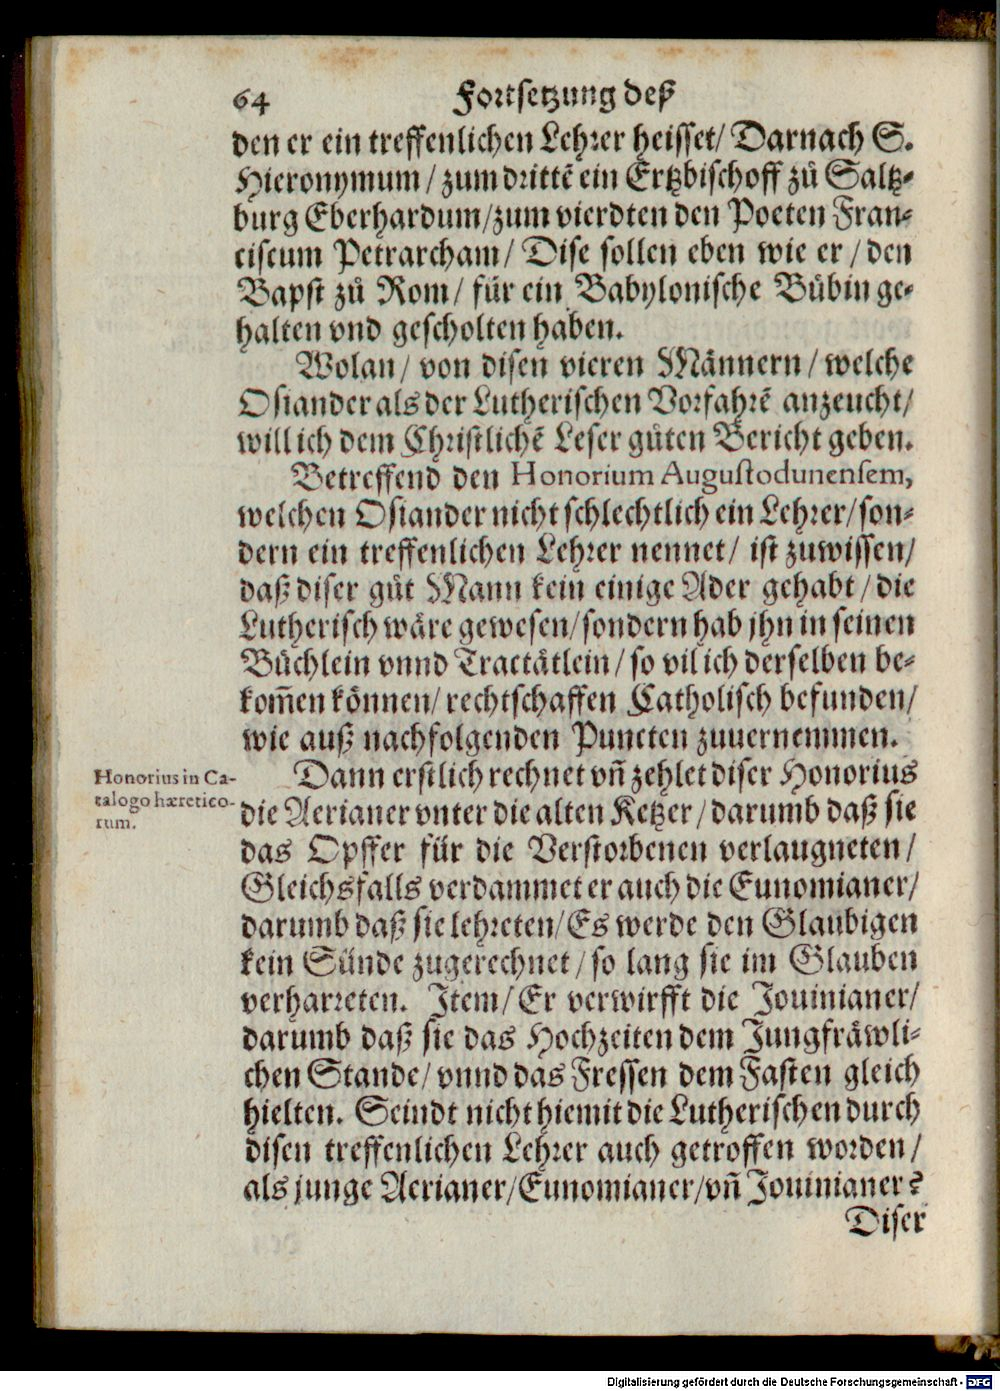 64 Fortsetzung deß
den er ein treffenlichen Lehrer heisset/ Darnach S.
Hieronymum / zum drittē ein Ertzbischoff zů Saltz-
burg Eberhardum/zum vierdten den Poeten Fran-
ciscum Petrarcham/ Dise sollen eben wie er / den
Bapst zů Rom/ für ein Babylonische Bůbin ge-
halten vnd gescholten haben.
Wolan/ von disen vieren Männern / welche
Osiander als der Lutherischen Vorfahrē anzeucht/
will ich dem Christlichē Leser gůten Bericht geben.
Betreffend den Honorium Augustodunensem,
welchen Osiander nicht schlechtlich ein Lehrer/son-
dern ein treffenlichen Lehrer nennet/ ist zuwissen/
daß diser gůt Mann kein einige Ader gehabt / die
Lutherisch wäre gewesen/sondern hab jhn in seinen
Büchlein vnnd Tractätlein / so vil ich derselben be-
kom̃en können/ rechtschaffen Catholisch befunden/
wie auß nachfolgenden Puncten zuuernemmen.
Honorius in Ca-
talogo hæretico-
rum.
Dann erstlich rechnet vñ zehlet diser Honorius
die Aerianer vnter die alten Ketzer / darumb daß sie
das Opffer für die Verstorbenen verlaugneten /
Gleichsfalls verdammet er auch die Eunomianer/
darumb daß sie lehreten/Es werde den Glaubigen
kein Sünde zugerechnet / so lang sie im Glauben
verharreten. Item/ Er verwirfft die Jouinianer/
darumb daß sie das Hochzeiten dem Jungfräwli-
chen Stande/ vnnd das Fressen dem Fasten gleich
hielten. Seindt nicht hiemit die Lutherischen durch
disen treffenlichen Lehrer auch getroffen worden/
als junge Aerianer/Eunomianer/vñ Jouinianer?
Diser
Digitalisierung gefördert durch die Deutsche Forschungsgemeinschaft - DFG